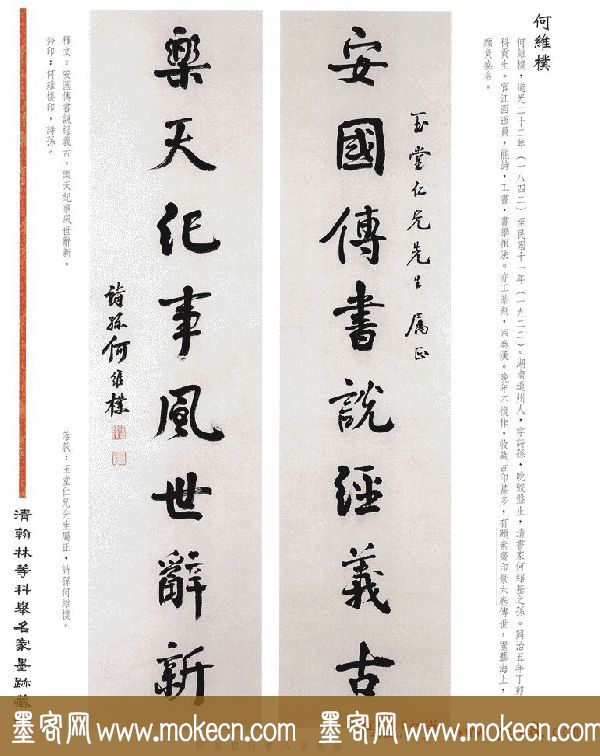 何維樸
何維樸，道光二十二年（一八四二）至民國十一年（一九二二）。湖南道州人，字詩孫，晚號盤止，清書家何紹基之孫。同治五年丁卯
科貢生。官江西道員，能詩，工書，書學祖法。亦工篆刻，宗秦漢。晚年不復作，收藏古印甚多，有頤素齋印景六卷傳世，鬻藝海上，
頗負盛名。
玉堂仁兄先生屬正
安國傳書說經義古
樂天紀事風世辭新
詩孫何維樸
釋文：安國傳書說經義古，樂天紀事風世辭新。
鈐印：何維樸印，詩孫。
落款：玉堂仁兄先生屬正，詩孫何維樸。
清翰林等科舉名家墨跡藏
何維樸行書八言對聯
墨客网_www.mokecn.com_墨客网_www.mokecn.com